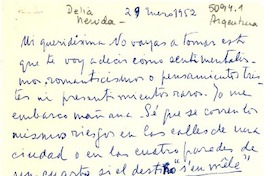 Delia
Neruda - 29 Enero 1952 5094.1
Argentina
Mi queridísima No vayas a tomar esto
que te voy a decir como sentimentalis-
mos, romanticismos o pensamientos tris-
tes ni presentimientos raros. Yo me
embarco mañana. Sé que se corren los
mismos riesgos en las calles de una
ciudad o en las cuatro paredes de
un cuarto si el destino "s'en mêle"